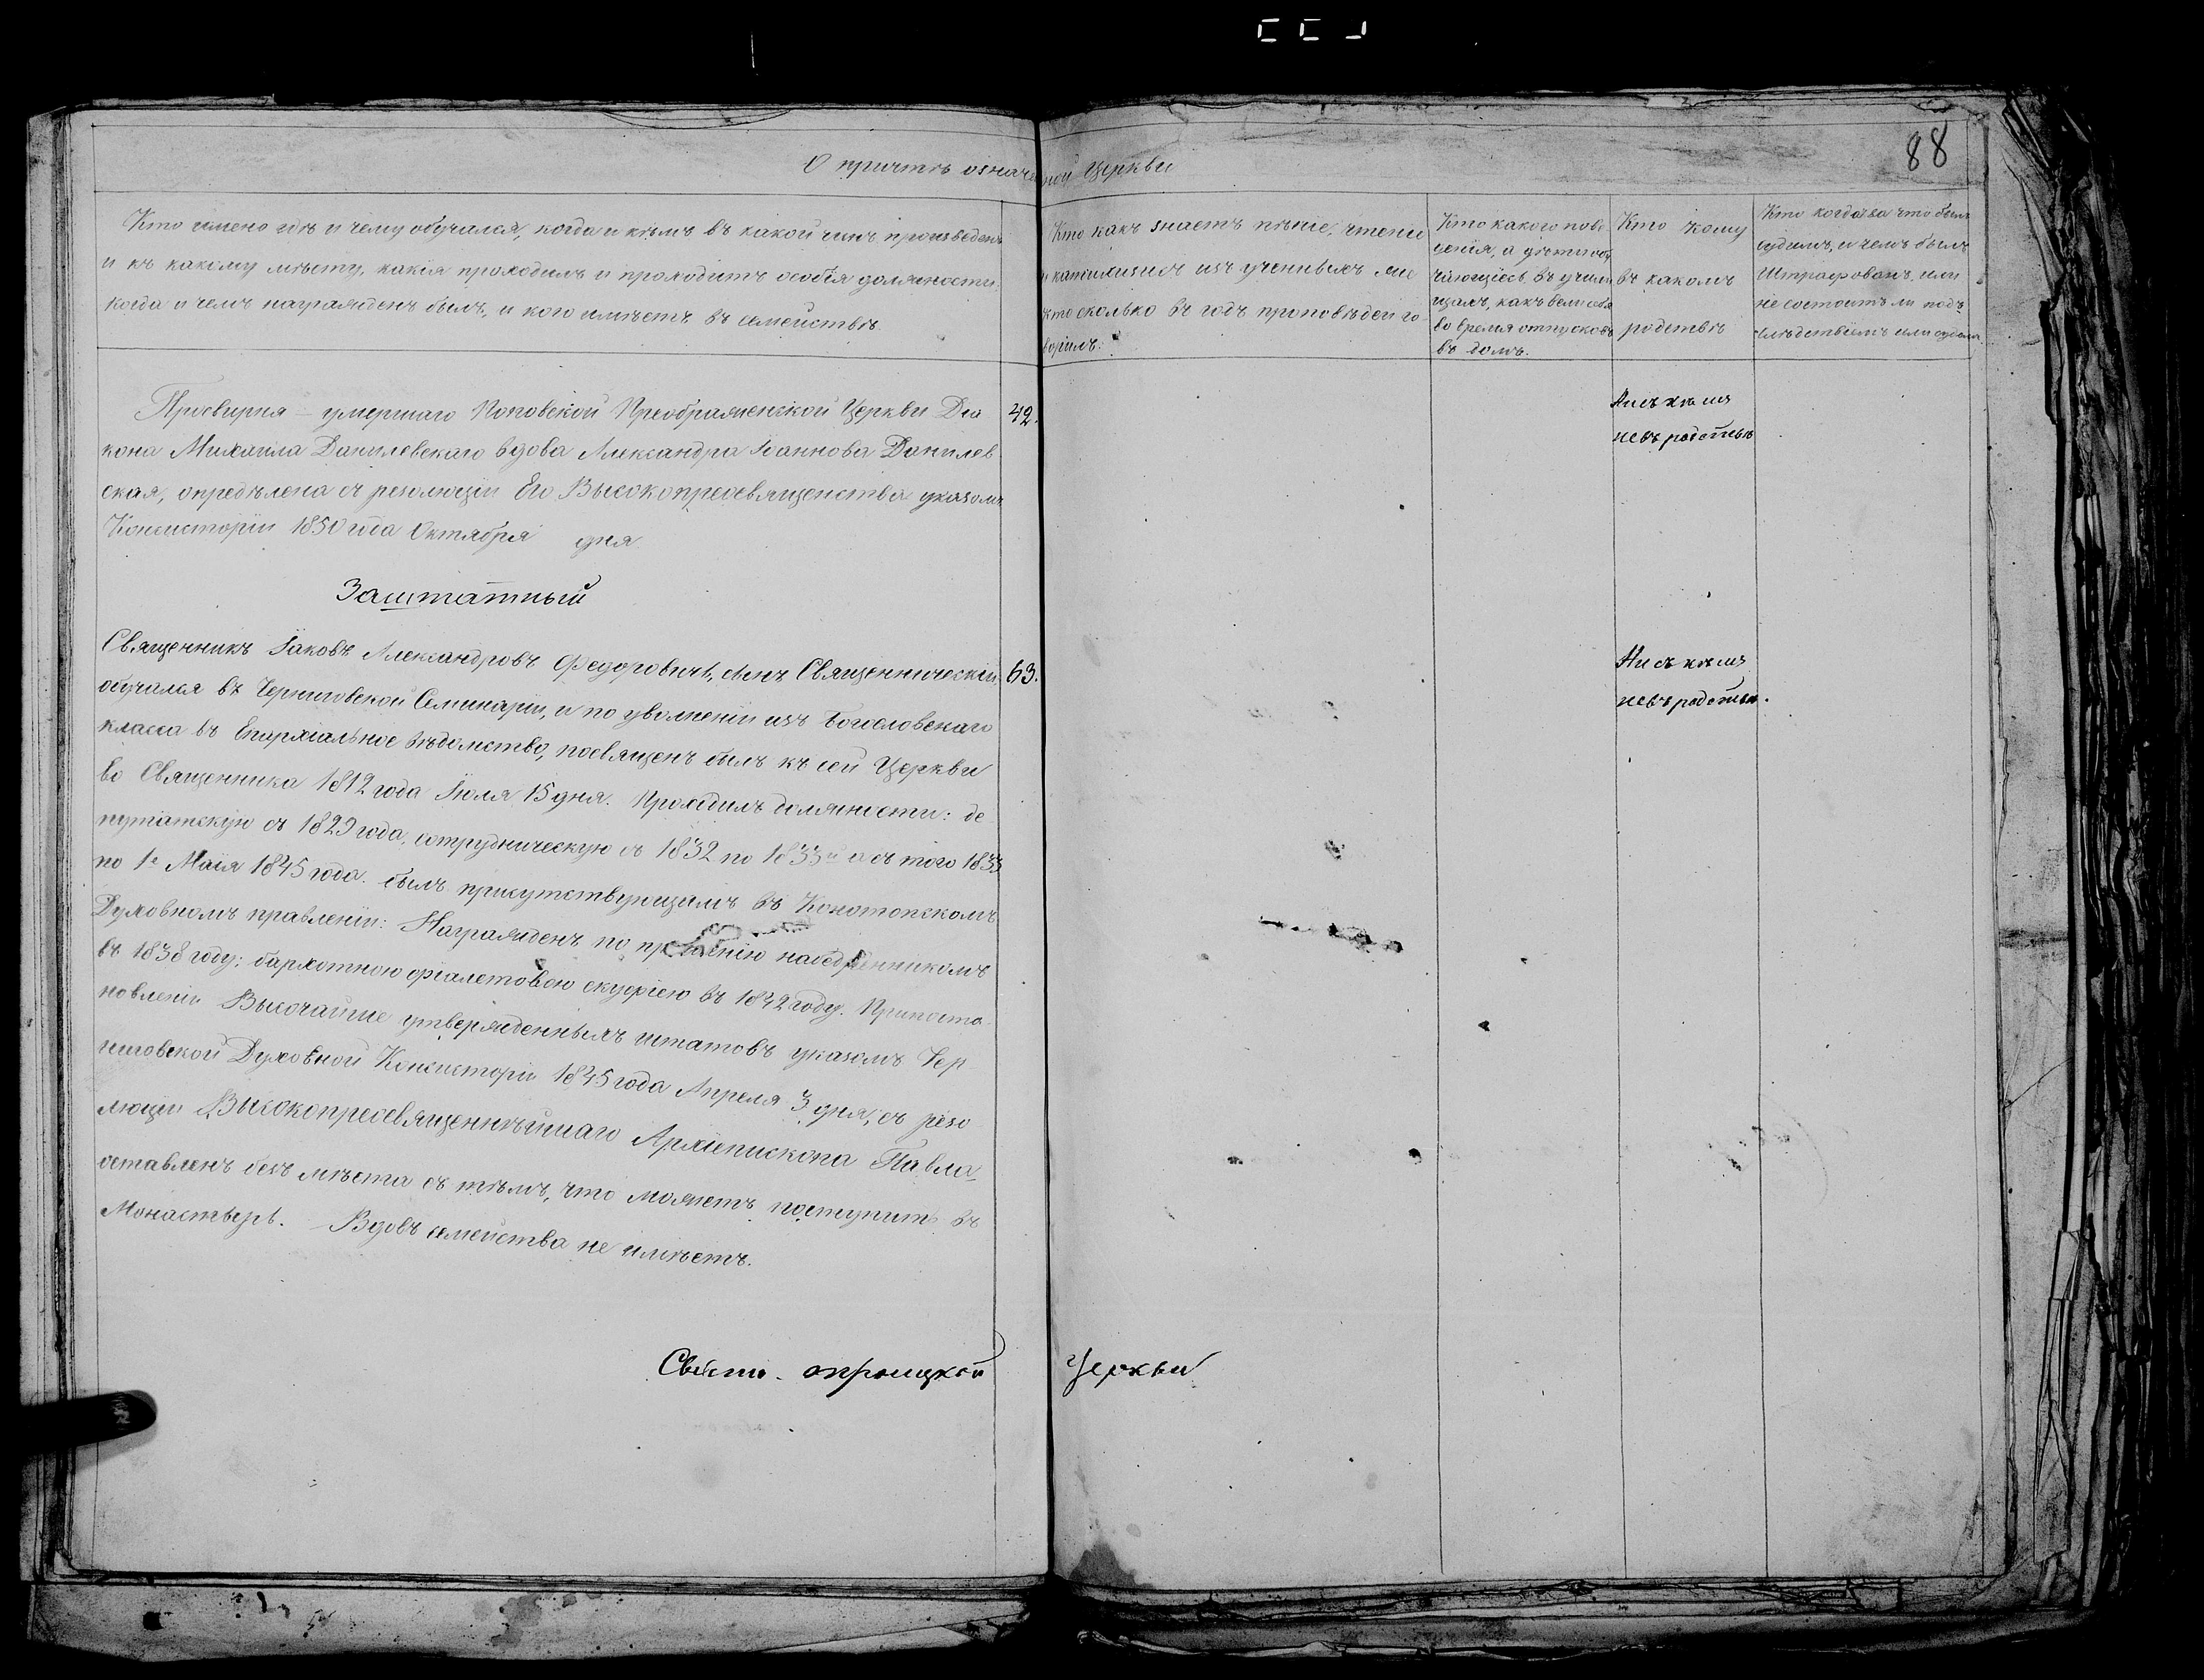 88
О причтѣ означенной Церкви
Кто имено гдѣ и чему обучался, когда и кѣмъ въ какой чинъ произведенъ
и къ какому мѣсту, какія проходилъ и проходитъ особія должности.
когда и чемъ награжденъ былъ, и кого имѣетъ въ семействѣ
Кто какъ знаетъ пѣніе, чтеніе
и катихизисъ изъ ученныхъ же
кто сколько въ годъ проповѣдей го
ворилъ.
Кто какого пове
денія, а дѣти обу
чающіесь въ учили
щахъ, какъ вели себя
во время отпусковъ
въ домъ.
Кто кому
въ какомъ
родствѣ
Кто когда за что былъ
судимъ, и чемъ былъ
Штрафованъ, или
не состоитъ ли подъ
слѣдствіемъ или судомъ.
Просвирня – умершаго Поповской Преображенской Церкви Діа
кона Михаила Данилевскаго вдова Александра Іоаннова Данилев
ская, опредѣлена съ резолюціи Его Высокопреосвященства указомъ
Консисторіи 1850 года Октября дня
42.
Ни съ кѣмъ
не въ родствѣ
Заштатный
Священникъ Іаковъ Александровъ Федоровичъ, сынъ Священническій.
обучался въ Черниговской Семинаріи, и по уволненіи изъ Богословскаго
класса въ Епархіальное вѣдомство, посвященъ былъ къ сей Церкви
во Священника 1812 года Іюля 15 дня. Проходилъ должности: де
путатскую съ 1829 года, сотрудническую съ 1832 по 1833й и съ того 1833
по 1е Маія 1845 года. былъ присутствующимъ въ Конотопскомъ
Духовномъ правленіи: Награжденъ по набедренникомъ
въ 1838 году; бархотною фіалетовою скуфіею въ 1842 году. При поста
новленіи Высочайше утвержденныхъ штатовъ указомъ Чер
ниговской Духовной Консисторіи 1845 года Апреля 3 дня, съ резо
люціи Высокопреосвященнѣйшаго Архіепископа Павла
оставленъ безъ мѣста съ тѣмъ, что можетъ поступить въ
Монастырь. Вдовъ семейства не имѣетъ.
63.
Ни съ кѣмъ
не въ родствѣ.
Свято- троицкой Церкви